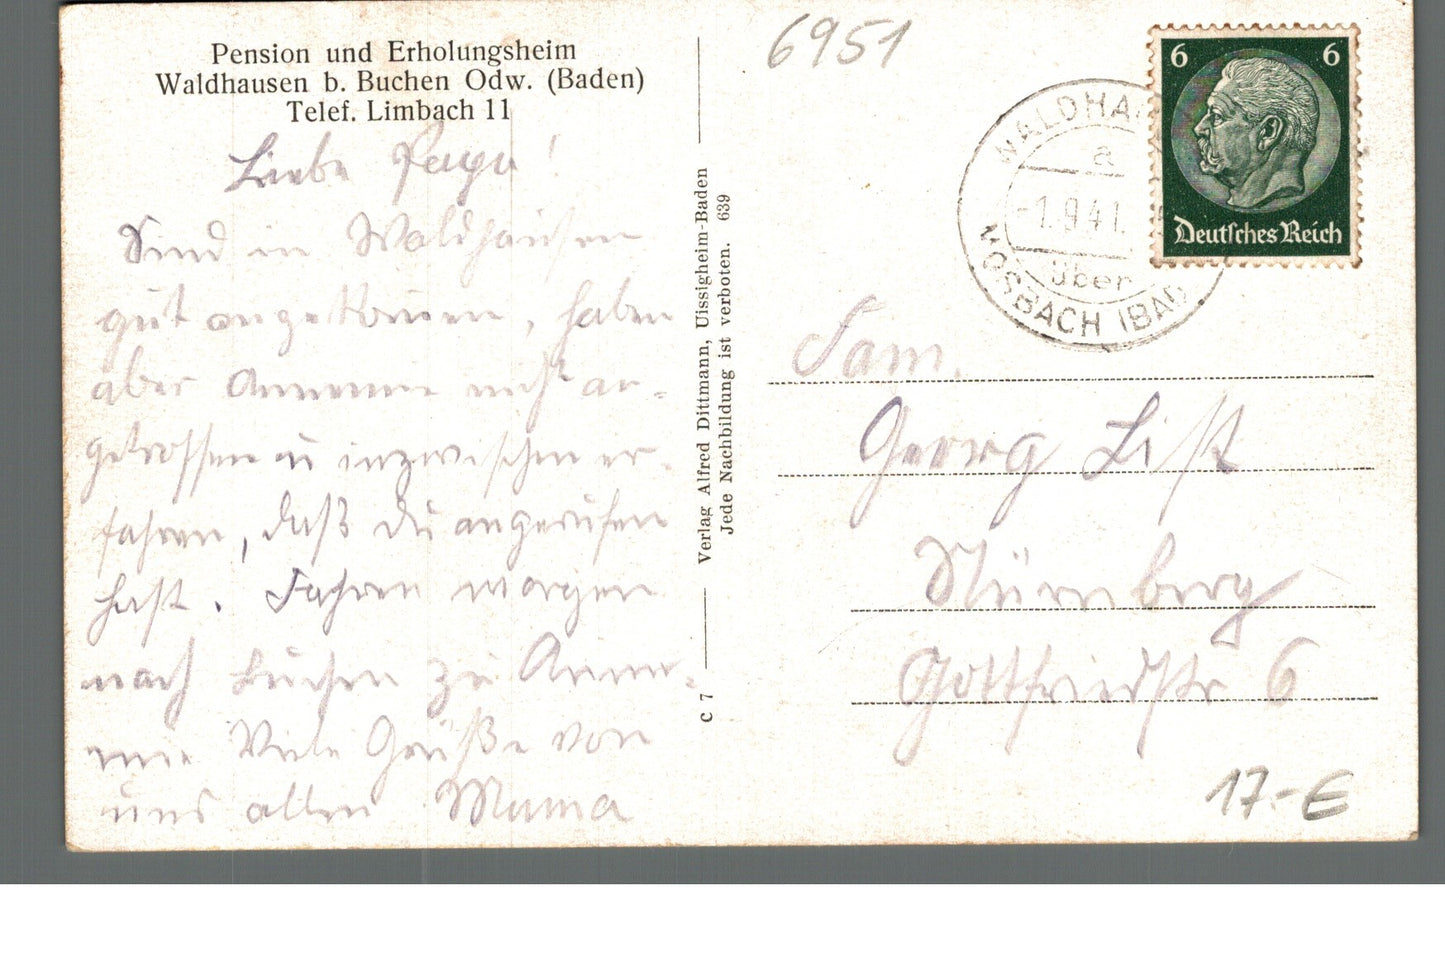 Pension und Erholungsheim
Waldhausen b. Buchen Odw. (Baden)
Telef. Limbach 11
Liebe Papa!
Sind in Waldhausen
gut angekommen, haben
aber Annemie nicht an-
getroffen u inzwischen er-
fahren, daß du angerufen
hast. Fahren morgen
nach Buchen zu Anne-
mie Viele Grüße von
uns allen Mama
Verlag Alfred Dittmann, Uissigheim-Baden
Jede Nachbildung ist verboten. 639
C 7
6951
6 6
Deutsches Reich
WALDHAU
a
-1.9.41.
über
MOSBACH (BAD
Fam.
Georg List
Nürnberg
Gottfriedstr 6
17.-€